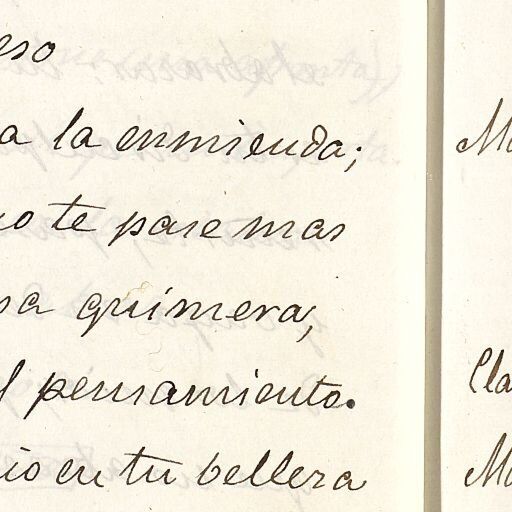 eso
a la enmienda;
no te pase mas
sa quimera,
l pensamiento.
io en tu bellera
Ma
Cla
Ma